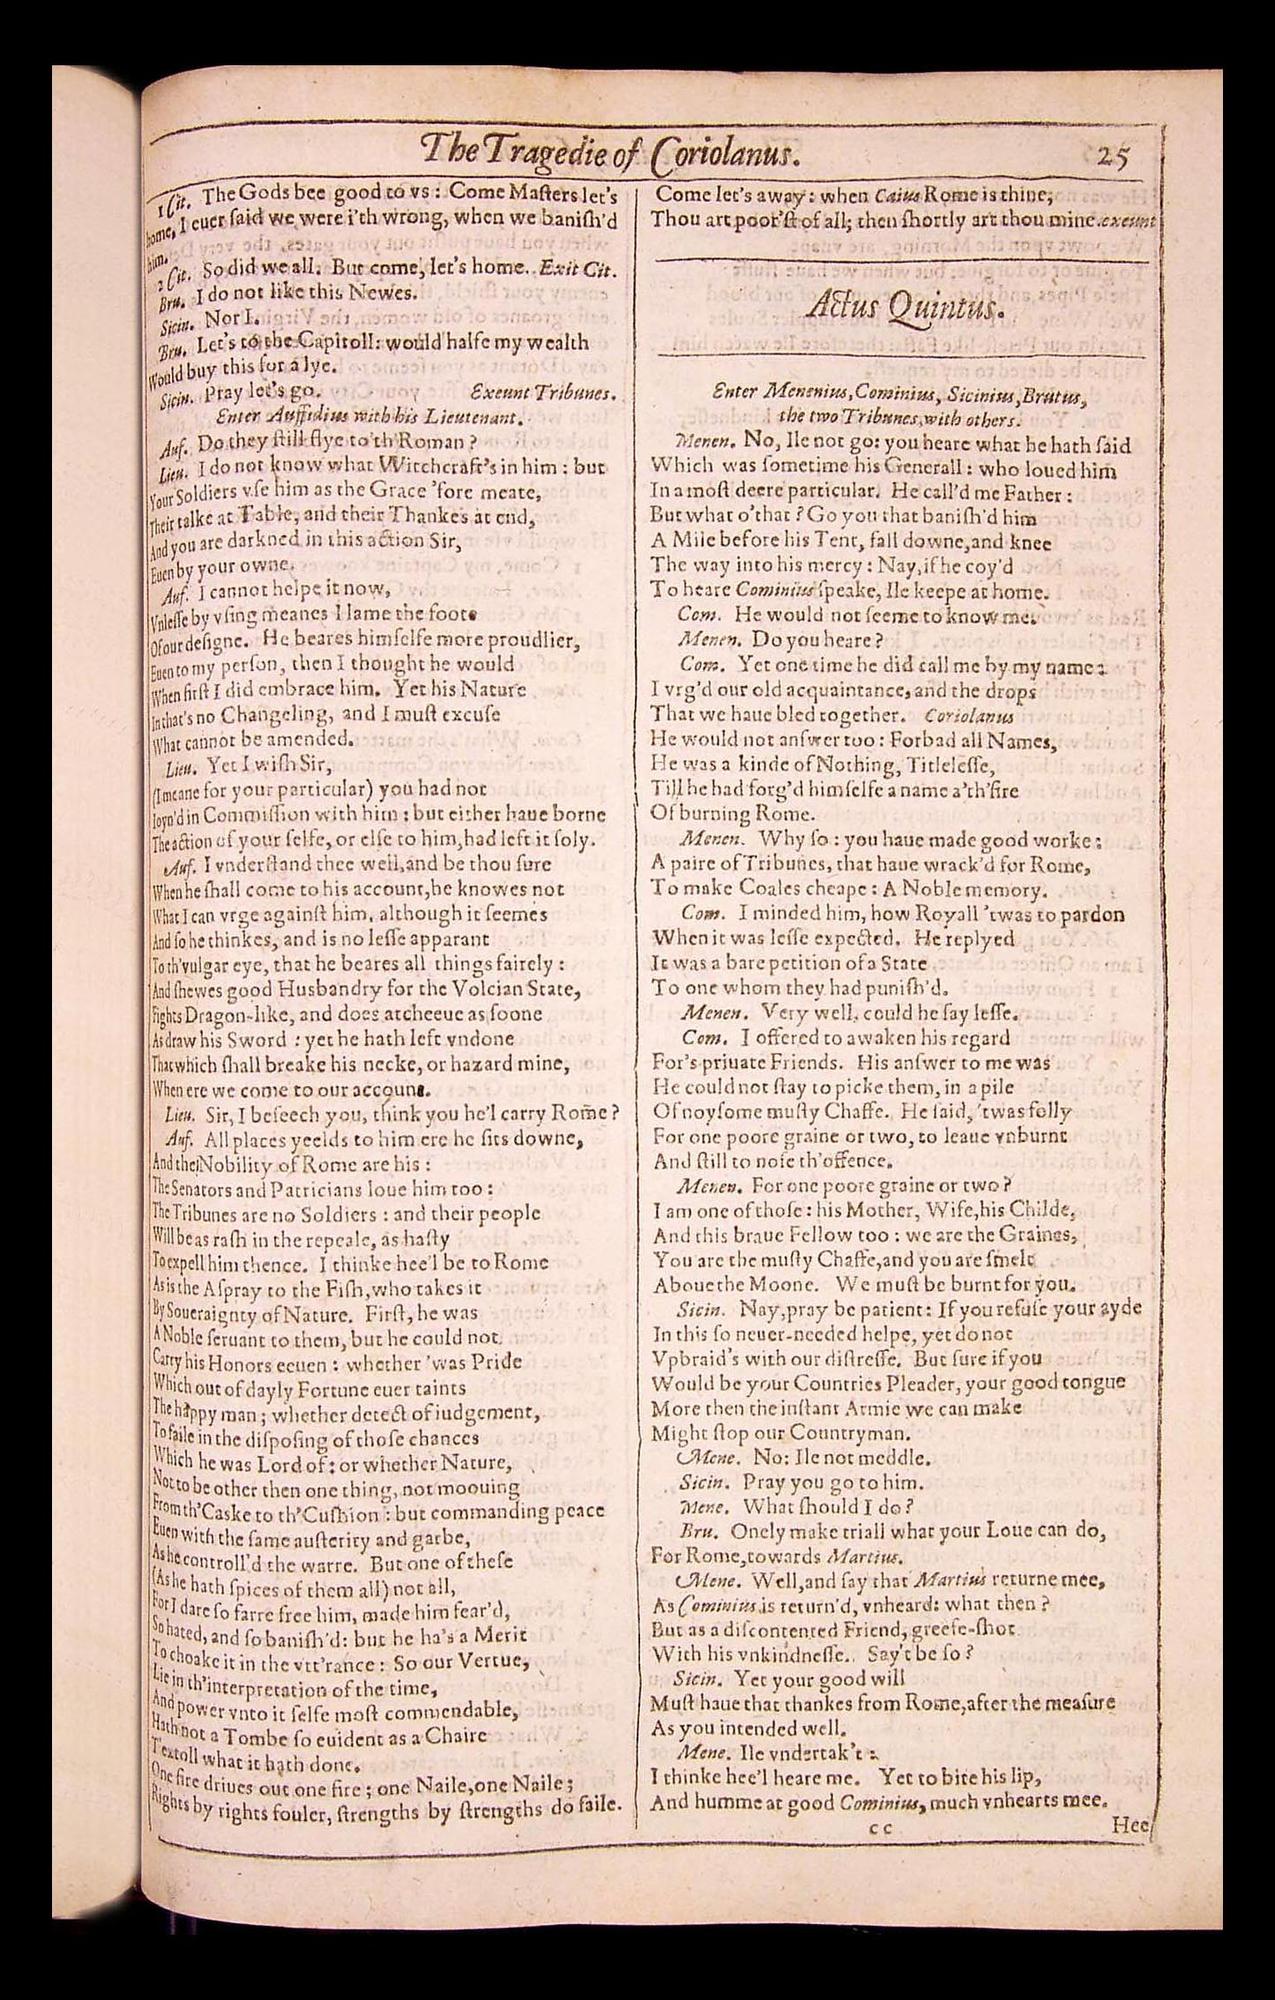 The Tragedie of Coriolanus. 25
1 Cit. The Gods bee good to vs : Come Masters let's
home, I euer said we were i'th wrong, when we banish'd
him.
2 Cit. So did we all. But come, let's home. Exit Cit.
Bru. I do not like this Newes.
Sicin. Nor I.
Bru. Let's to the Capitoll: would halfe my wealth
Would buy this for a lye.
Sicin. Pray let's go. Exeunt Tribunes.
Enter Auffidius with his Lieutenant.
Auf. Do they still flye to'th Roman ?
Lieu. I do not know what Witchcraft's in him : but
Your Soldiers vse him as the Grace 'fore meate,
Their talke at Table, and their Thankes at end,
And you are darkned in this action Sir,
Euen by your owne.
Auf. I cannot helpe it now,
Vnlesse by vsing meanes I lame the foote
Of our designe. He beares himselfe more proudlier,
Euen to my person, then I thought he would
When first I did embrace him. Yet his Nature
In that's no Changeling, and I must excuse
What cannot be amended.
Lieu. Yet I wish Sir,
(I meane for your particular) you had not
Ioyn'd in Commission with him : but either haue borne
The action of your selfe, or else to him, had left it soly.
Auf. I vnderstand thee well, and be thou sure
When he shall come to his account, he knowes not
What I can vrge against him, although it seemes
And so he thinkes, and is no lesse apparant
To th'vulgar eye, that he beares all things fairely :
And shewes good Husbandry for the Volcian State,
Fights Dragon-like, and does atcheeue as soone
As draw his Sword : yet he hath left vndone
That which shall breake his necke, or hazard mine,
When ere we come to our account.
Lieu. Sir, I beseech you, think you he'l carry Rome ?
Auf. All places yeelds to him ere he sits downe,
And the Nobility of Rome are his :
The Senators and Patricians loue him too :
The Tribunes are no Soldiers : and their people
Will be as rash in the repeale, as hasty
To expell him thence. I thinke hee'l be to Rome
As is the Aspray to the Fish, who takes it
By Soueraignty of Nature. First, he was
A Noble seruant to them, but he could not
Carry his Honors eeuen : whether 'was Pride
Which out of dayly Fortune euer taints
The happy man ; whether detect of iudgement,
To faile in the disposing of those chances
Which he was Lord of : or whether Nature,
Not to be other then one thing, not moouing
From th'Caske to th'Cushion : but commanding peace
Euen with the same austerity and garbe,
As he controll'd the warre. But one of these
(As he hath spices of them all) not all,
For I dare so farre free him, made him fear'd,
So hated, and so banish'd: but he ha's a Merit
To choake it in the vtt'rance : So our Vertue,
Lie in th'interpretation of the time,
And power vnto it selfe most commendable,
Hath not a Tombe so euident as a Chaire
T'extoll what it hath done.
One fire driues out one fire ; one Naile, one Naile ;
Rights by rights fouler, strengths by strengths do faile.
Come let's away : when Caius Rome is thine,
Thou art poor'st of all; then shortly art thou mine. exeunt
Actus Quintus.
Enter Menenius, Cominius, Sicinius, Brutus,
the two Tribunes, with others.
Menen. No, Ile not go: you heare what he hath said
Which was sometime his Generall : who loued him
In a most deere particular. He call'd me Father :
But what o'that ? Go you that banish'd him
A Mile before his Tent, fall downe, and knee
The way into his mercy : Nay, if he coy'd
To heare Cominius speake, Ile keepe at home.
Com. He would not seeme to know me.
Menen. Do you heare ?
Com. Yet one time he did call me by my name :
I vrg'd our old acquaintance, and the drops
That we haue bled together. Coriolanus
He would not answer too : Forbad all Names,
He was a kinde of Nothing, Titlelesse,
Till he had forg'd himselfe a name a'th'fire
Of burning Rome.
Menen. Why so : you haue made good worke :
A paire of Tribunes, that haue wrack'd for Rome,
To make Coales cheape : A Noble memory.
Com. I minded him, how Royall 'twas to pardon
When it was lesse expected. He replyed
It was a bare petition of a State
To one whom they had punish'd.
Menen. Very well, could he say lesse.
Com. I offered to awaken his regard
For's priuate Friends. His answer to me was
He could not stay to picke them, in a pile
Of noysome musty Chaffe. He said, 'twas folly
For one poore graine or two, to leaue vnburnt
And still to nose th'offence.
Menen. For one poore graine or two ?
I am one of those : his Mother, Wife, his Childe,
And this braue Fellow too : we are the Graines,
You are the musty Chaffe, and you are smelt
Aboue the Moone. We must be burnt for you.
Sicin. Nay, pray be patient : If you refuse your ayde
In this so neuer-needed helpe, yet do not
Vpbraid's with our distresse. But sure if you
Would be your Countries Pleader, your good tongue
More then the instant Armie we can make
Might stop our Countryman.
Mene. No: Ile not meddle.
Sicin. Pray you go to him.
Mene. What should I do ?
Bru. Onely make triall what your Loue can do,
For Rome, towards Martius.
Mene. Well, and say that Martius returne mee,
As Cominius is return'd, vnheard: what then ?
But as a discontented Friend, greefe-shot
With his vnkindnesse. Say't be so ?
Sicin. Yet your good will
Must haue that thankes from Rome, after the measure
As you intended well.
Mene. Ile vndertak't :
I thinke hee'l heare me. Yet to bite his lip,
And humme at good Cominius, much vnhearts mee.
cc Hee